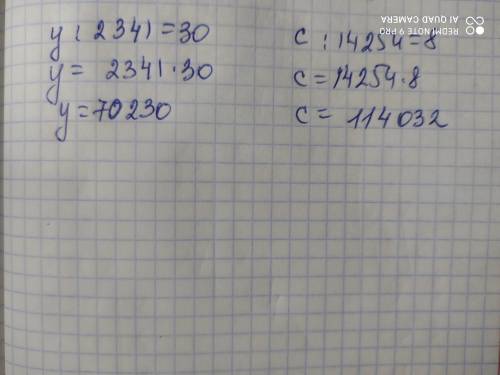 REDMI NOTE 9 PRO
AI QUAD CAMERA
y : 2341 = 30
y = 2341 · 30
y = 70230
c : 14254 = 8
c = 14254 · 8
c = 114032